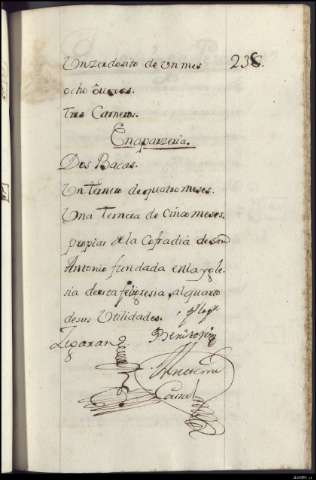 Un zerdosito de un mes 238
ocho
Tres Carneros.
En aparzeria.
Dos Bacas.
Un Ternero de quatro meses.
Una Ternera de Cinco meses,
propias de la Cofradia de Sn
Antonio fundada en la Ygle-
sia de esta feligresia, al quarto
de sus Utilidades.